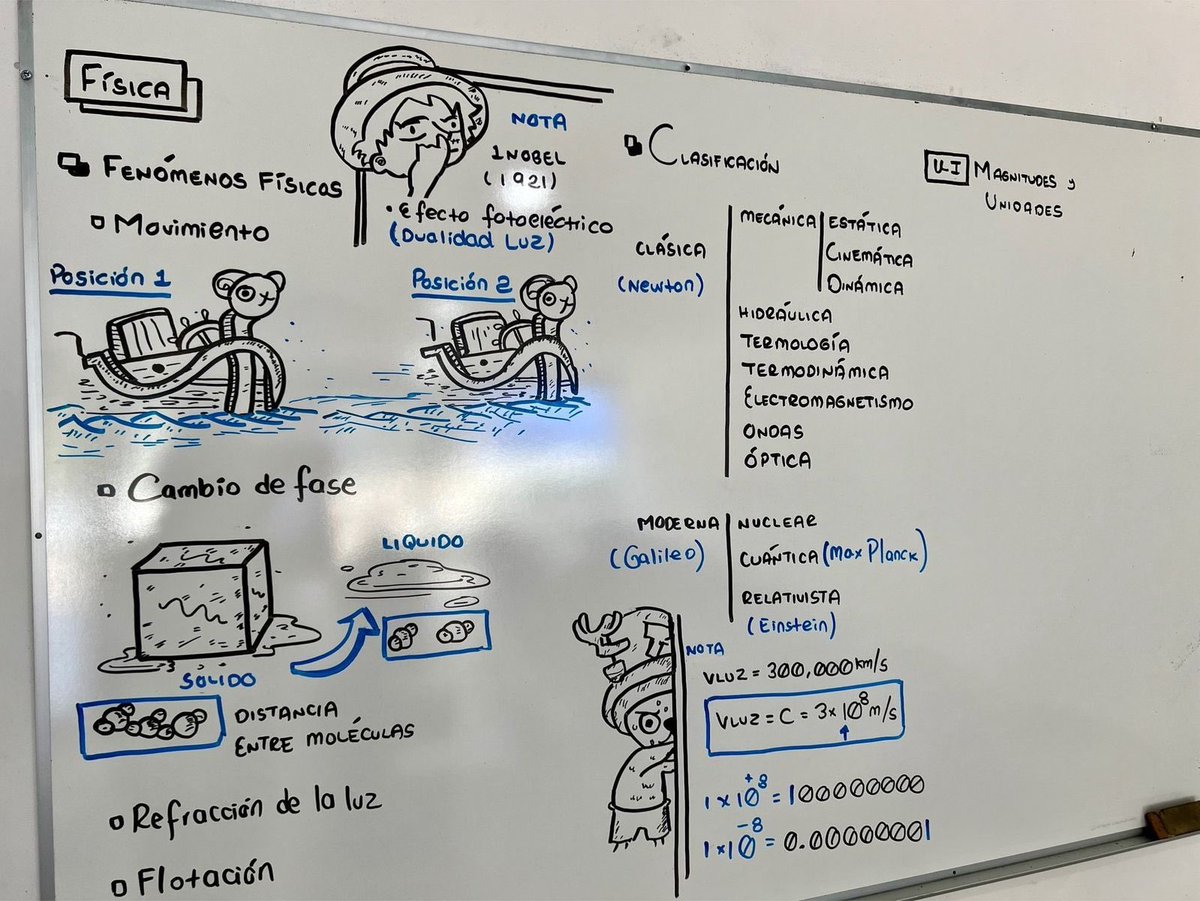 FÍSICA
FENÓMENOS FÍSICOS
Movimiento
Posición 1
Posición 2
NOTA
1 NOBEL
(1921)
• Efecto fotoeléctrico
(Dualidad Luz)
Cambio de fase
LIQUIDO
SÓLIDO
DISTANCIA
ENTRE MOLÉCULAS
Refracción de la luz
Flotación
CLASIFICACIÓN
CLÁSICA
(Newton)
MECÁNICA
ESTÁTICA
CINEMÁTICA
DINÁMICA
HIDRÁULICA
TERMOLOGÍA
TERMODINÁMICA
ELECTROMAGNETISMO
ONDAS
ÓPTICA
MODERNA
(Galileo)
NUCLEAR
CUÁNTICA (Max Planck)
RELATIVISTA
(Einstein)
NOTA
VLUZ = 300,000 km/s
VLUZ = C = 3 x 10⁸ m/s
1 x 10⁺⁸ = 100000000
1 x 10⁻⁸ = 0.00000001
U.I MAGNITUDES y
UNIDADES